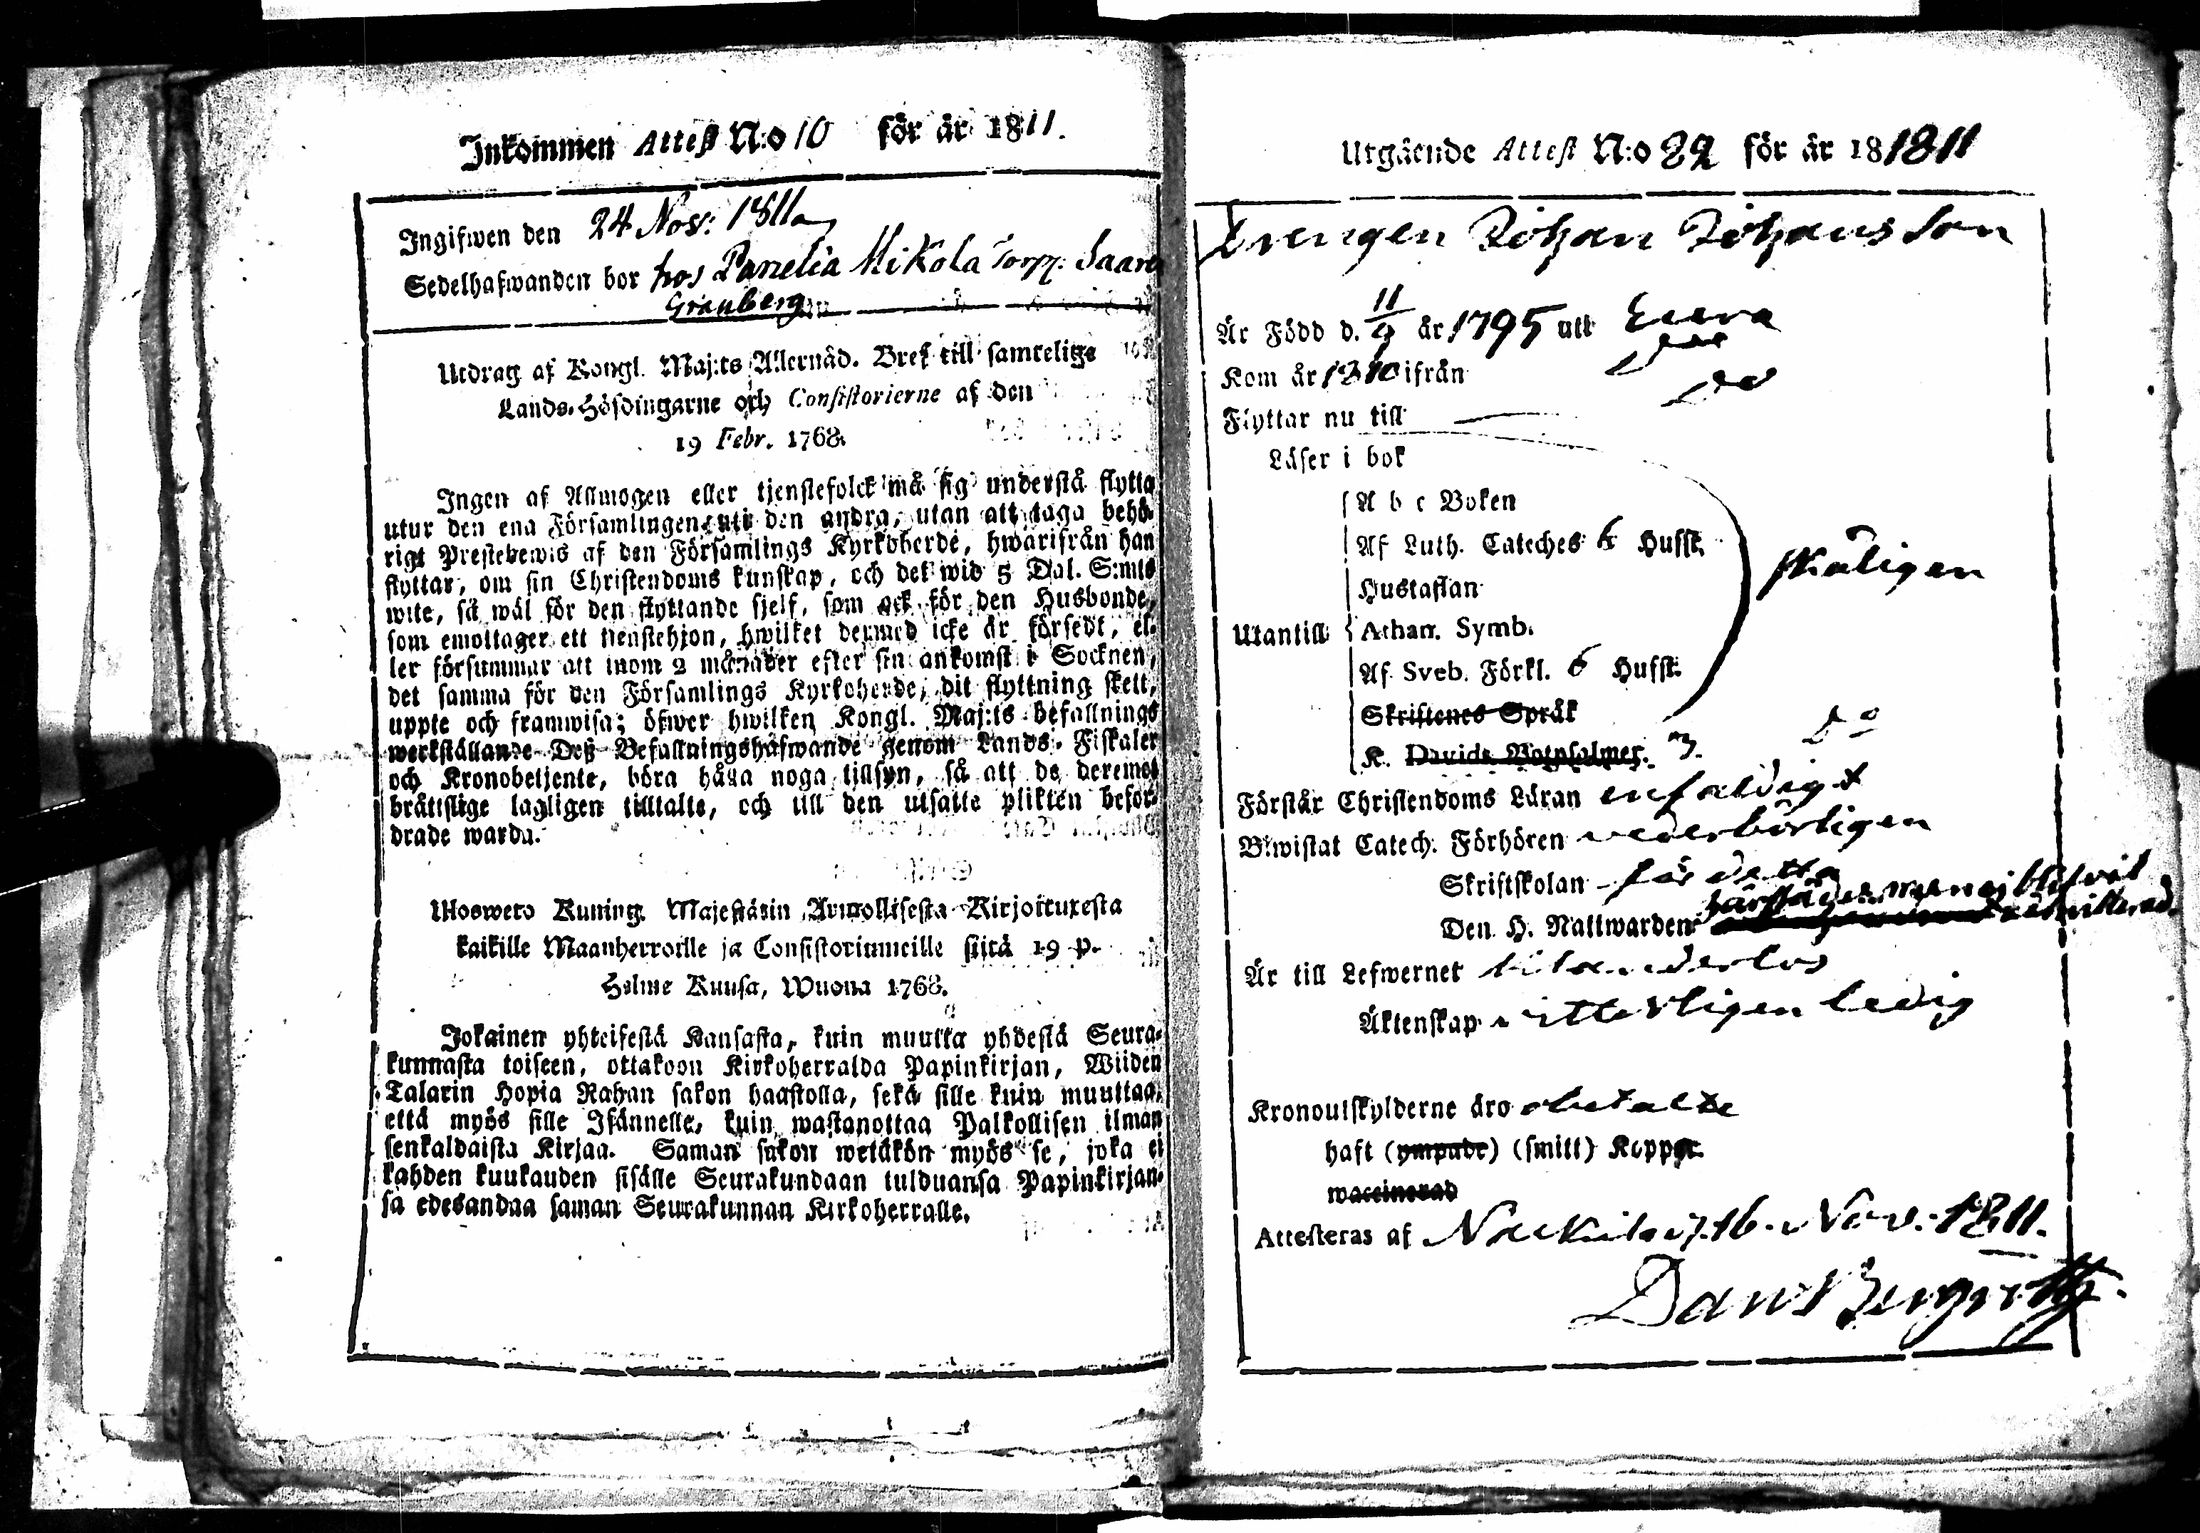 Inkommen Attest N:o 10 för år 1811.
Ingifwen den 24 Nov: 1811
Sedelhafwanden bor hos Panelia Mikola Torp: Saari
Granberg
Utdrag af Kongl. Maj:ts Allernåd. Bref till samtelige
Lands-Höfdingarne och Consistorierne af den
19 Febr. 1768.
Ingen af Allmogen eller tjenstefolck må sig understå flytta
utur den ena Församlingen uti den andra, utan att taga behö-
rigt Prestebewis af den Församlings Kyrkoherde, hwarifrån han
flyttar, om sin Christendoms kunskap, och det wid 5 Dal. S:mts
wite, så wäl för den flyttande sjelf, som ock för den Husbonde,
som emottager ett tienstehjon, hwilket dermed icke är försedt, el-
ler försummar att inom 2 månader efter sin ankomst i Socknen,
det samma för den Församlings Kyrkoherde, dit flyttning skett,
uppte och framwisa; öfwer hwilken Kongl. Maj:ts befallnings
werkställande Deß Befallningshafwande genom Lands-Fiskaler
och Kronobetjente, böra hålla noga tillsyn, så att de deremot
bråttslige lagligen tilltalte, och till den utsatte plikten befor-
drade warda.
Uloswero Kuning. Majestätin Armollisesta Kirjoituxesta
kaikille Maanherroille ja Consistoriumeille siitä 19 p.
Helme Kuusa, Wuonna 1768.
Jokainen yhteisestä Kansasta, kuin muutta yhdestä Seura-
kunnasta toiseen, ottakoon Kirkoherralda Papinkirjan, Wiiden
Talarin Hopia Rahan sakon haastolla, sekä sille kuin muuttaa,
että myös sille Isännelle, kuin wastanottaa Palkollisen ilman
senkaldaista Kirjaa. Saman sakon wetäkön myös se, joka ei
kahden kuukauden sisälle Seurakundaan tulduansa Papinkirjan-
sa edesandaa saman Seurakunnan Kirkoherralle.
Utgående Attest N:o 82 för år 181811
Drengen Johan Johansson
Är Född d. 11/9 år 1795 utt Eura
Kom år 1810 ifrån do
Flyttar nu till do
Läser i bok
A b c Boken
Af Luth. Cateches 6 Hufst.
Hustaflan
skäligen
Utantill Athan. Symb.
Af Sveb. Förkl. 6 Hufst.
Skriftenes Språk
K. Davids Botpsalmer. 3. Do
Förstår Christendoms Läran enfaldigt
Biwistat Catech. Förhören vederbörligen
Skriftskolan för detta
Den H. Nattwarden
admitterad.
Är till Lefwernet
Äktenskap witterligen ledig
Kronoutskylderne äro obetalte
haft (ympade) (smitt) Koppor.
waccinerad
Attesteras af Nackila d. 16. Nov. 1811.